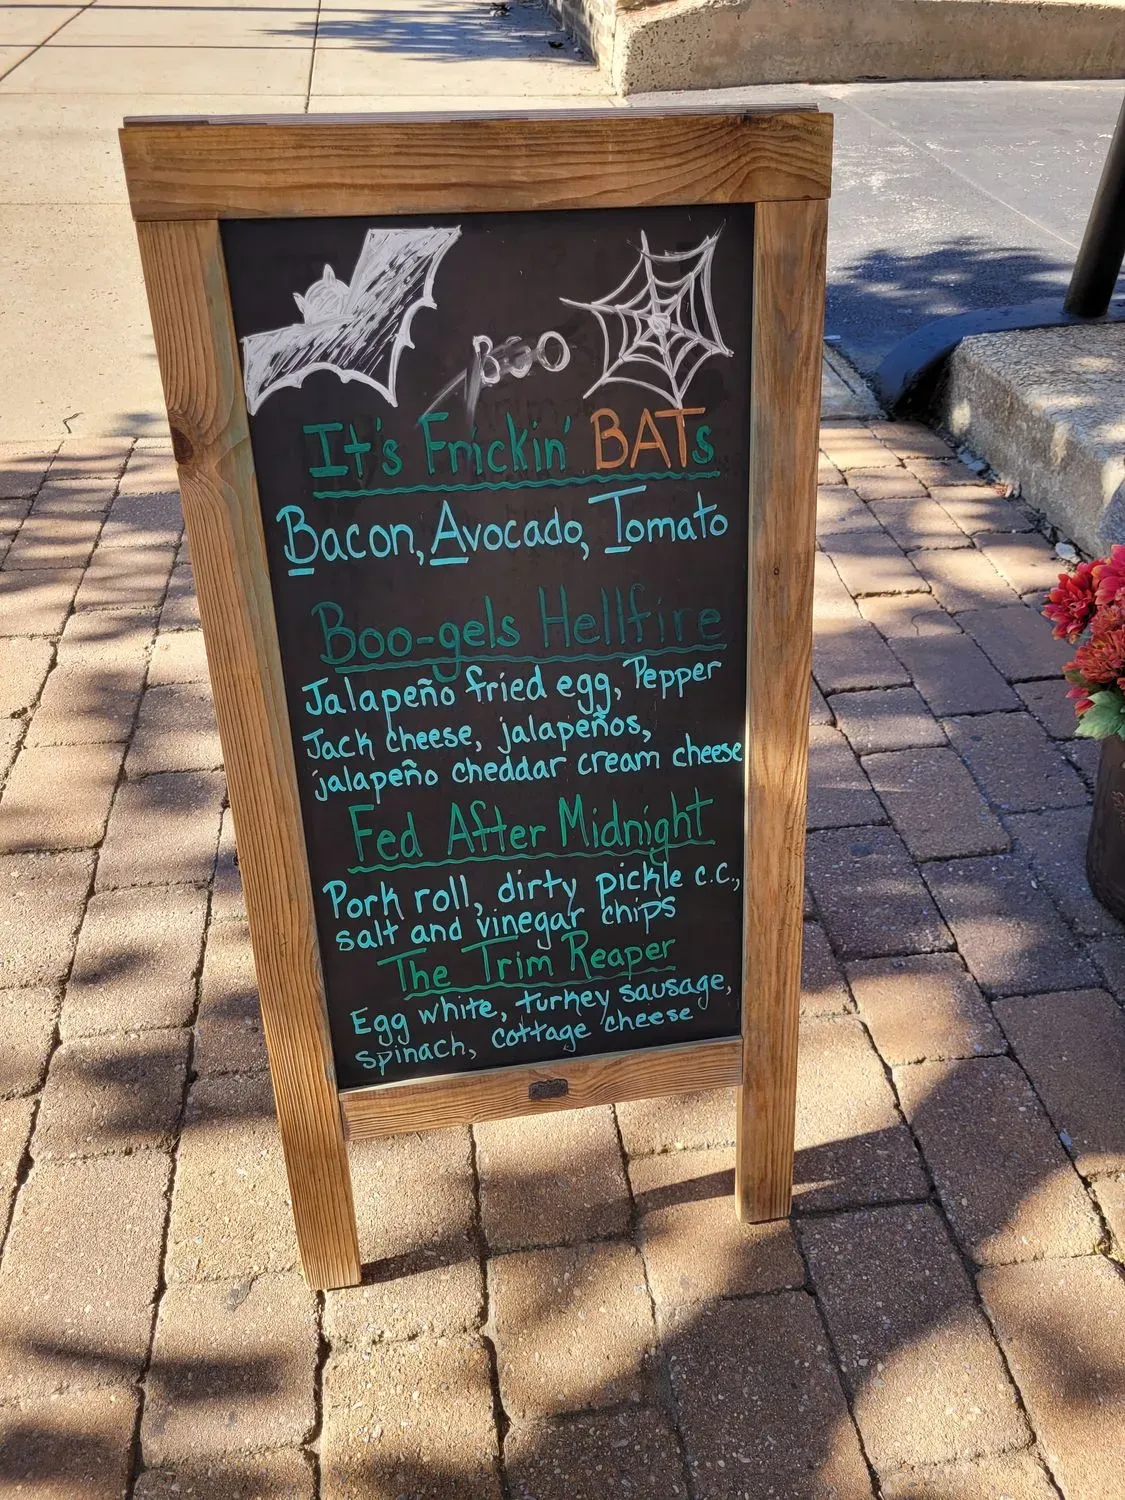 BOO
It's Frickin' BATs
Bacon, Avocado, Tomato
Boo-gels Hellfire
Jalapeño fried egg, Pepper
Jack cheese, jalapeños,
jalapeño cheddar cream cheese
Fed After Midnight
Pork roll, dirty pickle c.c.,
salt and vinegar chips
The Trim Reaper
Egg white, turkey sausage,
spinach, cottage cheese